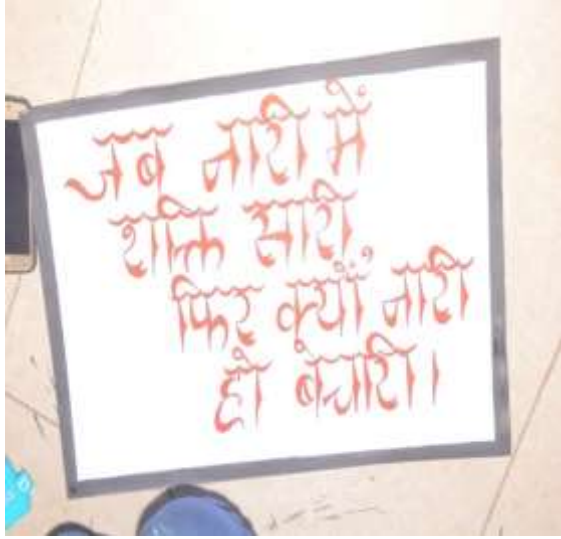 जब नारी में
शक्ति सारी
फिर क्यों नारी
हो बेचारी।